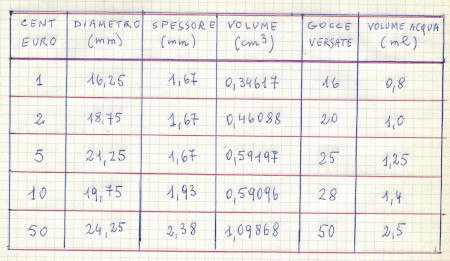 CENT EURO DIAMETRO (mm) SPESSORE (mm) VOLUME (cm³) GOCCE VERSATE VOLUME ACQUA (ml)
1 16,25 1,67 0,34617 16 0,8
2 18,75 1,67 0,46088 20 1,0
5 21,25 1,67 0,59197 25 1,25
10 19,75 1,93 0,59096 28 1,4
50 24,25 2,38 1,09868 50 2,5